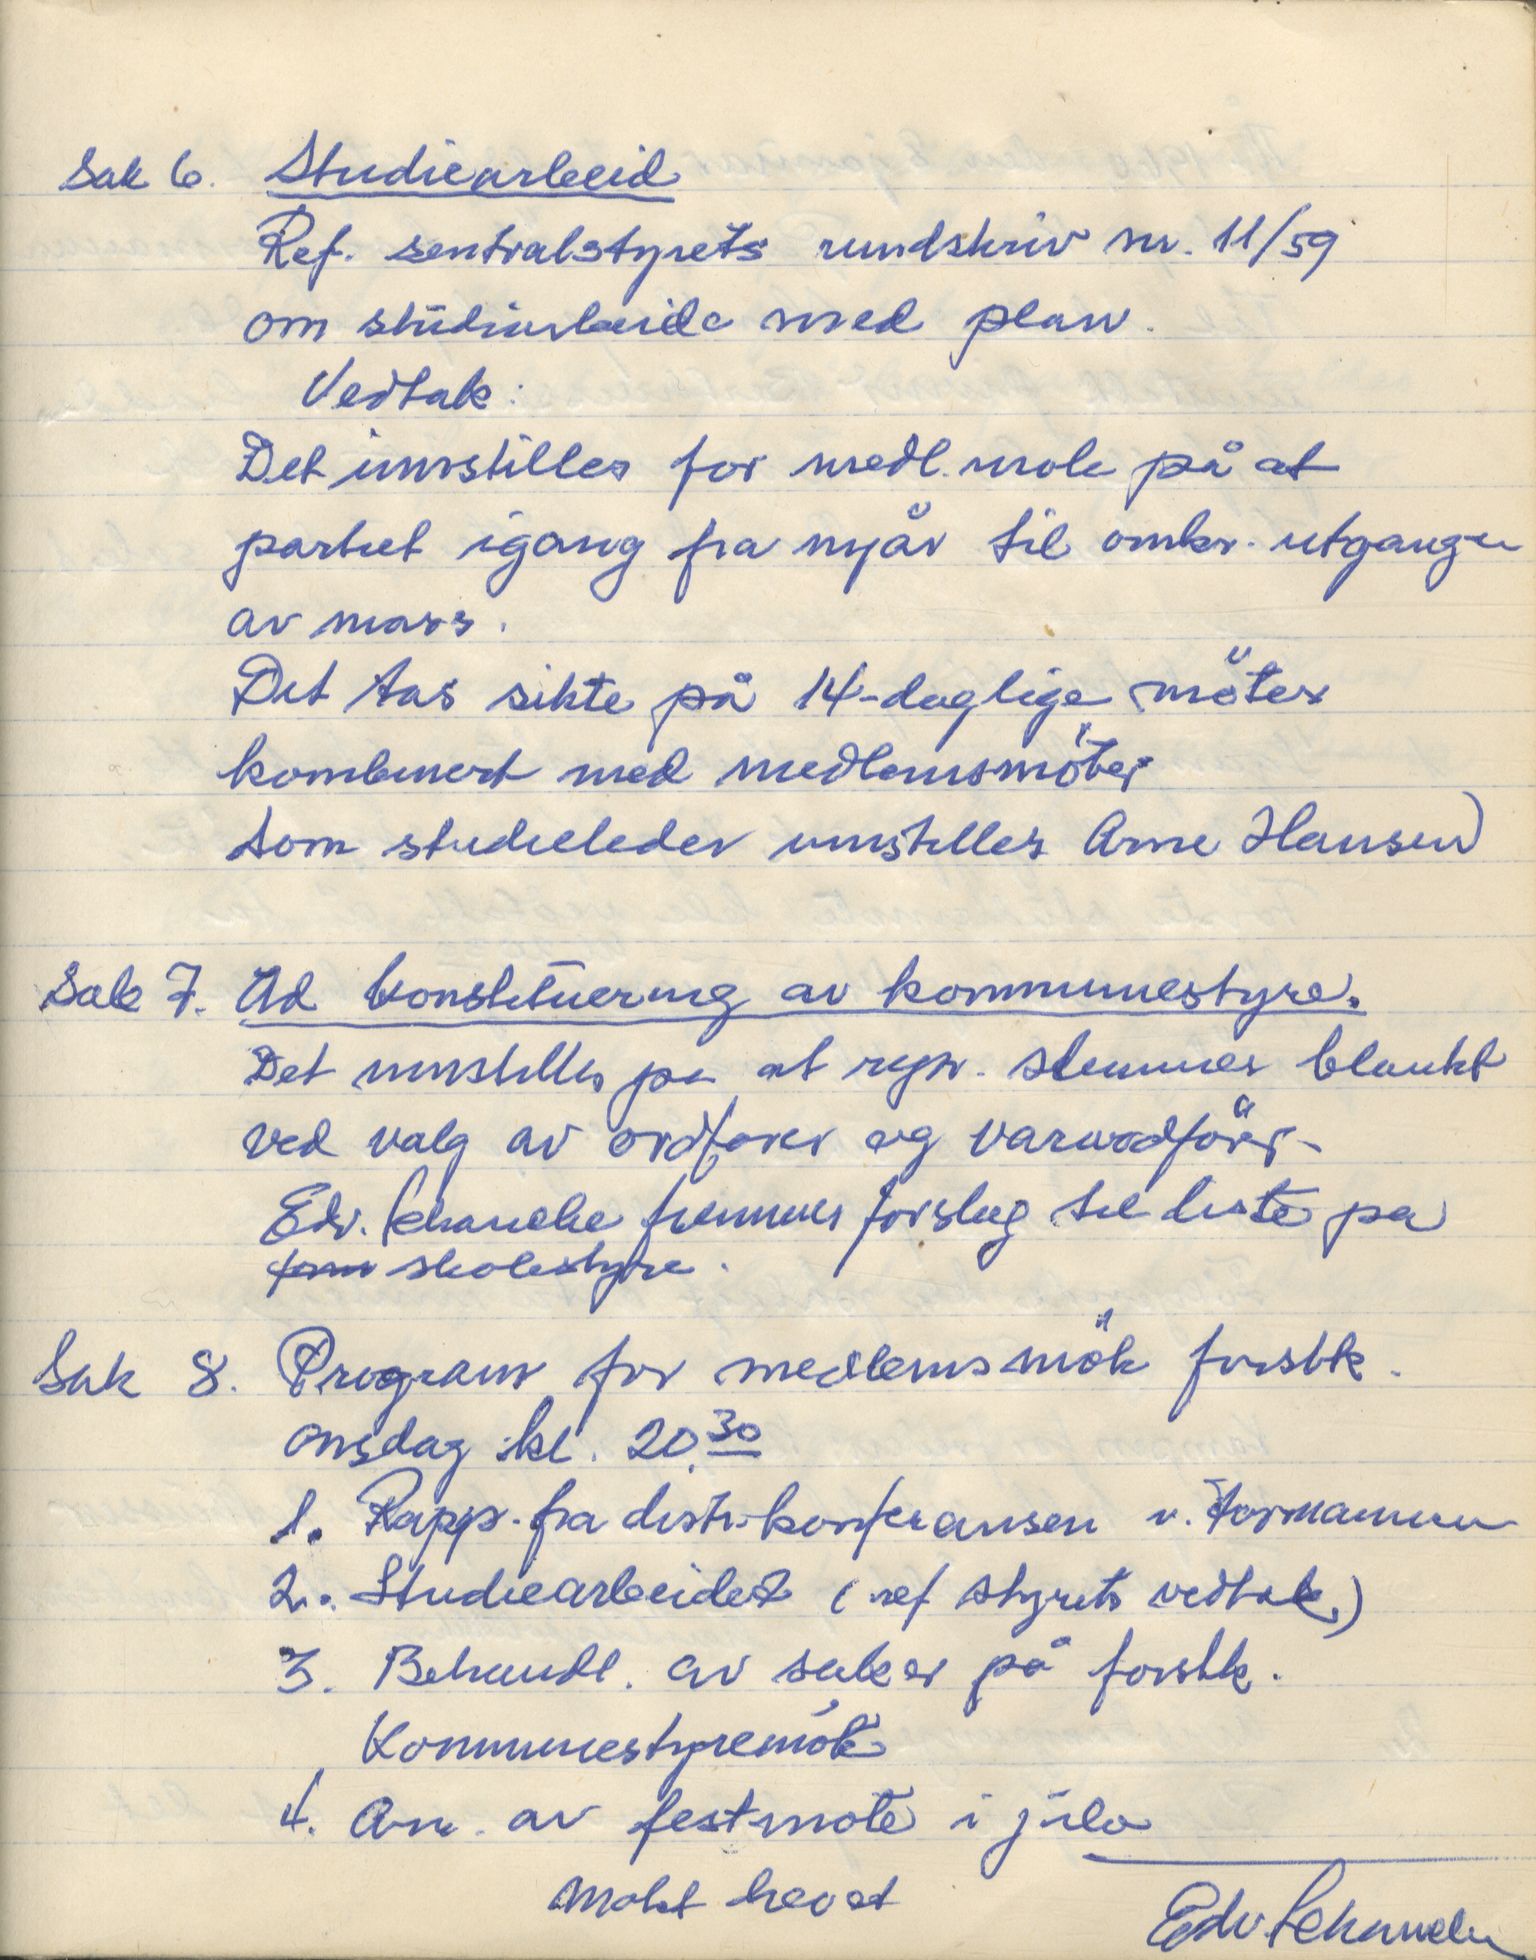 Sak 6. Studiearbeid
Ref. sentralstyrets rundskriv nr. 11/59
om studiarbeide med plan.
Vedtak:
Det innstilles for medl. møte på at
partiet igang fra nyår til omkr. utgangen
av mars.
Det tas sikte på 14-daglige möter
kombinert med medlemsmöter
Som studieleder innstilles Arne Hansen
Sak 7. Ad konstituering av kommunestyre.
Det innstilles på at repr. stemmer blankt
ved valg av ordförer og varaordförer.
Edv. Schanche fremmer forslag til liste på
skolestyre.
Sak 8. Program for medlemsmöte förstk.
onsdag kl. 20.30
1. Rapp. fra distr. konferansen v. formannen
2. Studiearbeidet (ref styrets vedtak.)
3. Behandl. av saker på forstk.
Kommunestyremöte
4. Arr. av festmøte i jula
Møtet hevet
Edv. Schanche